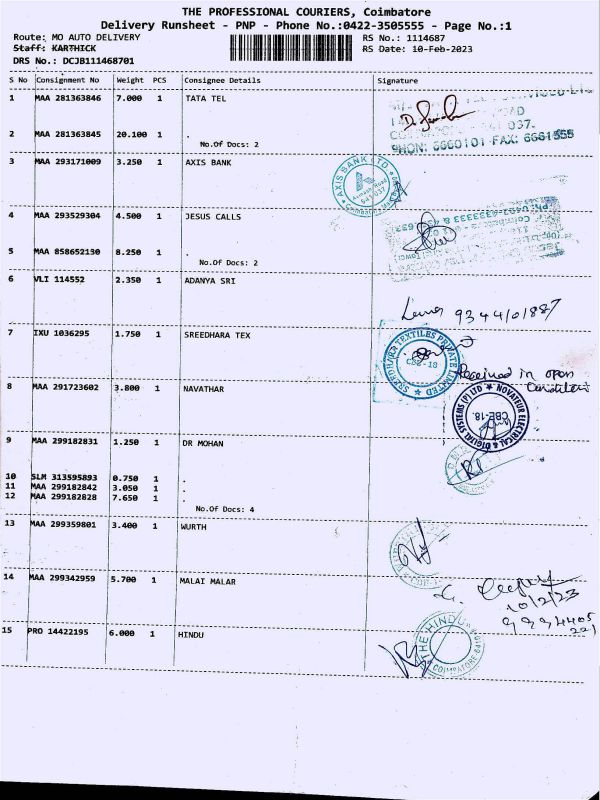 THE PROFESSIONAL COURIERS, Coimbatore
Delivery Runsheet - PNP - Phone No.:0422-3505555 - Page No.:1
Route: MO AUTO DELIVERY RS No.: 1114687
Staff: KARTHICK RS Date: 10-Feb-2023
DRS No.: DCJB111468701
S No Consignment No Weight PCS Consignee Details Signature
1 MAA 281363846 7.000 1 TATA TEL
2 MAA 281363845 20.100 1 .
No.Of Docs: 2
037.
PHON: 6660101 FAX: 6661555
3 MAA 293171009 3.250 1 AXIS BANK
AXIS BANK LTD
4 MAA 293529304 4.500 1 JESUS CALLS
5 MAA 858652130 8.250 1 .
No.Of Docs: 2
6 VLI 114552 2.350 1 ADANYA SRI
9344101887
7 IXU 1036295 1.750 1 SREEDHARA TEX
SREEDHARA TEXTILES PRIVATE LIMITED
CBE-18
Received in open
Condition
8 MAA 291723602 3.800 1 NAVATHAR
NOVATEUR ELECTRICAL & DIGITAL SYSTEMS (P) LTD
CBE-18.
9 MAA 299182831 1.250 1 DR MOHAN
10 SLM 313595893 0.750 1 .
11 MAA 299182842 3.050 1 .
12 MAA 299182828 7.650 1 .
No.Of Docs: 4
13 MAA 299359801 3.400 1 WURTH
14 MAA 299342959 5.700 1 MALAI MALAR
10/2/23
15 PRO 14422195 6.000 1 HINDU
THE HINDU
COIMBATORE